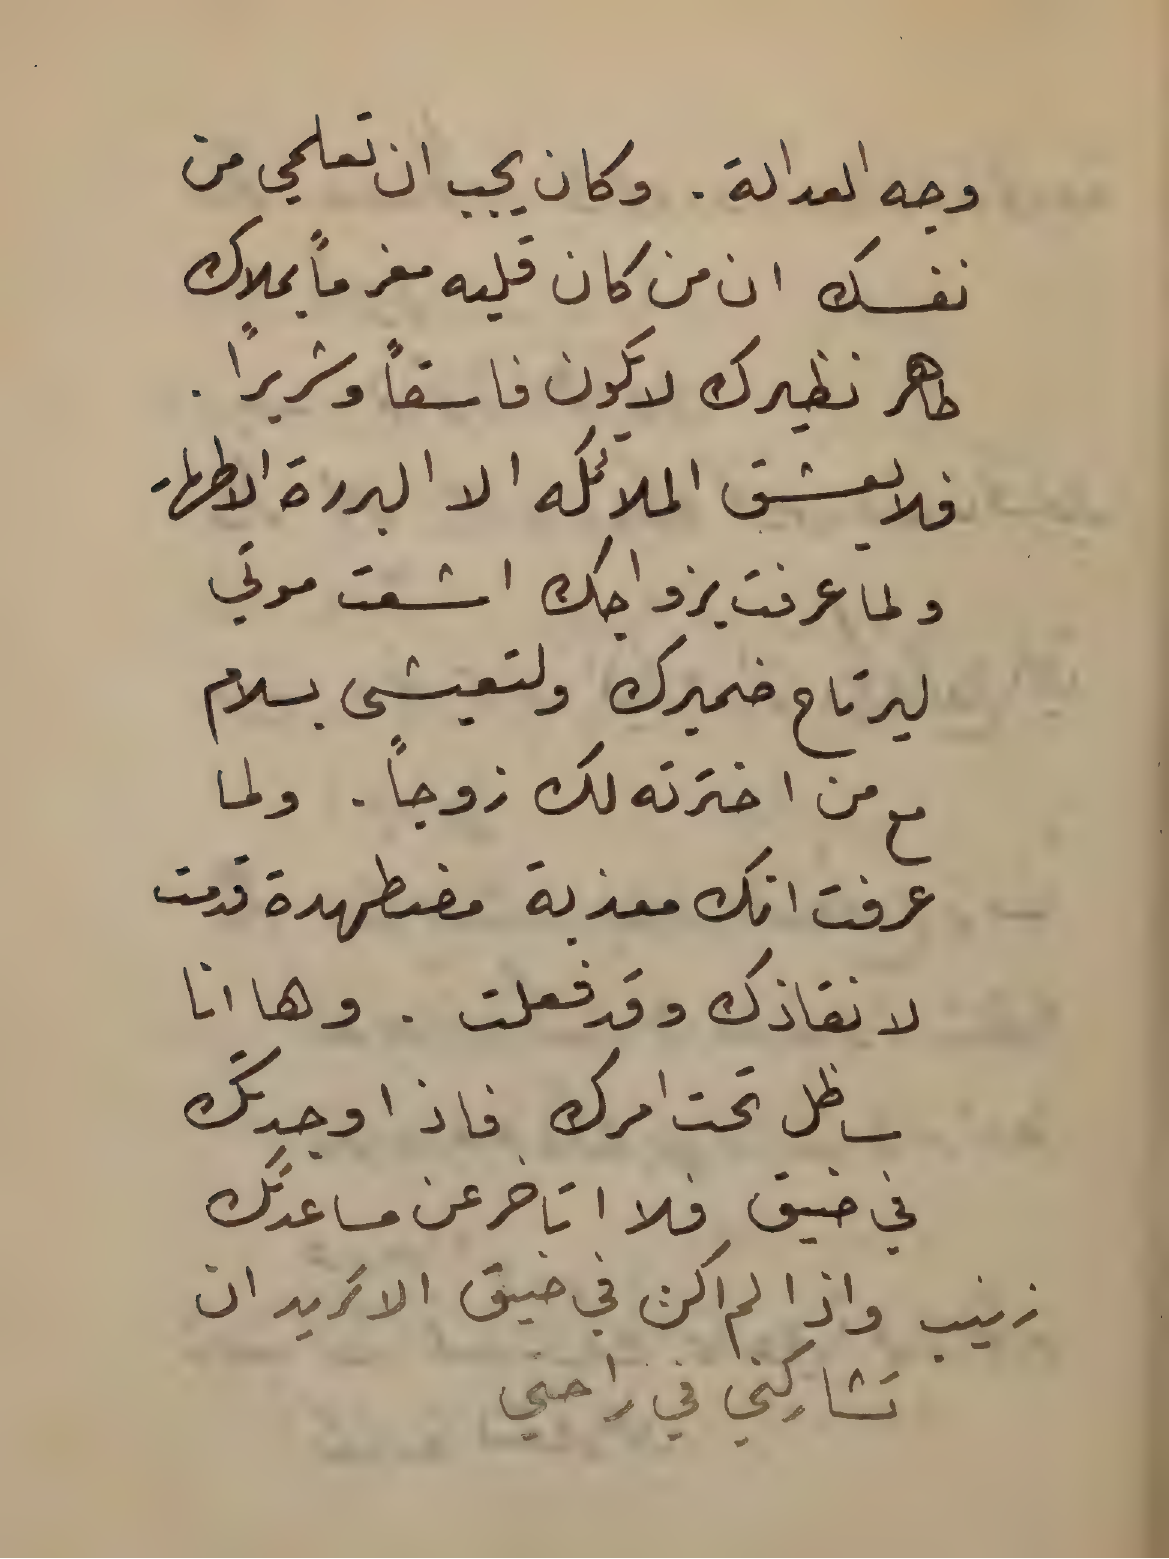 وجه العدالة . وكان يجب ان تعلمي من
نفسك ان من كان قلبه مغرماً بملاك
طاهر نظيرك لا يكون فاسقاً وشريراً .
فلا يعشق الملائكه الا البررة الاطهار
ولما عرفت بزواجك اشعت موتي
ليرتاح ضميرك ولتعيشي بسلام
مع من اخترته لك زوجاً . ولما
عرفت انك معذبة مضطهدة قدمت
لانقاذك وقد فعلت . وها انا
ساظل تحت امرك فاذا وجدتك
في ضيق فلا اتاخر عن مساعدتك
زينب واذا لم اكن في ضيق الا تريد ان
تشاركني في راحتي